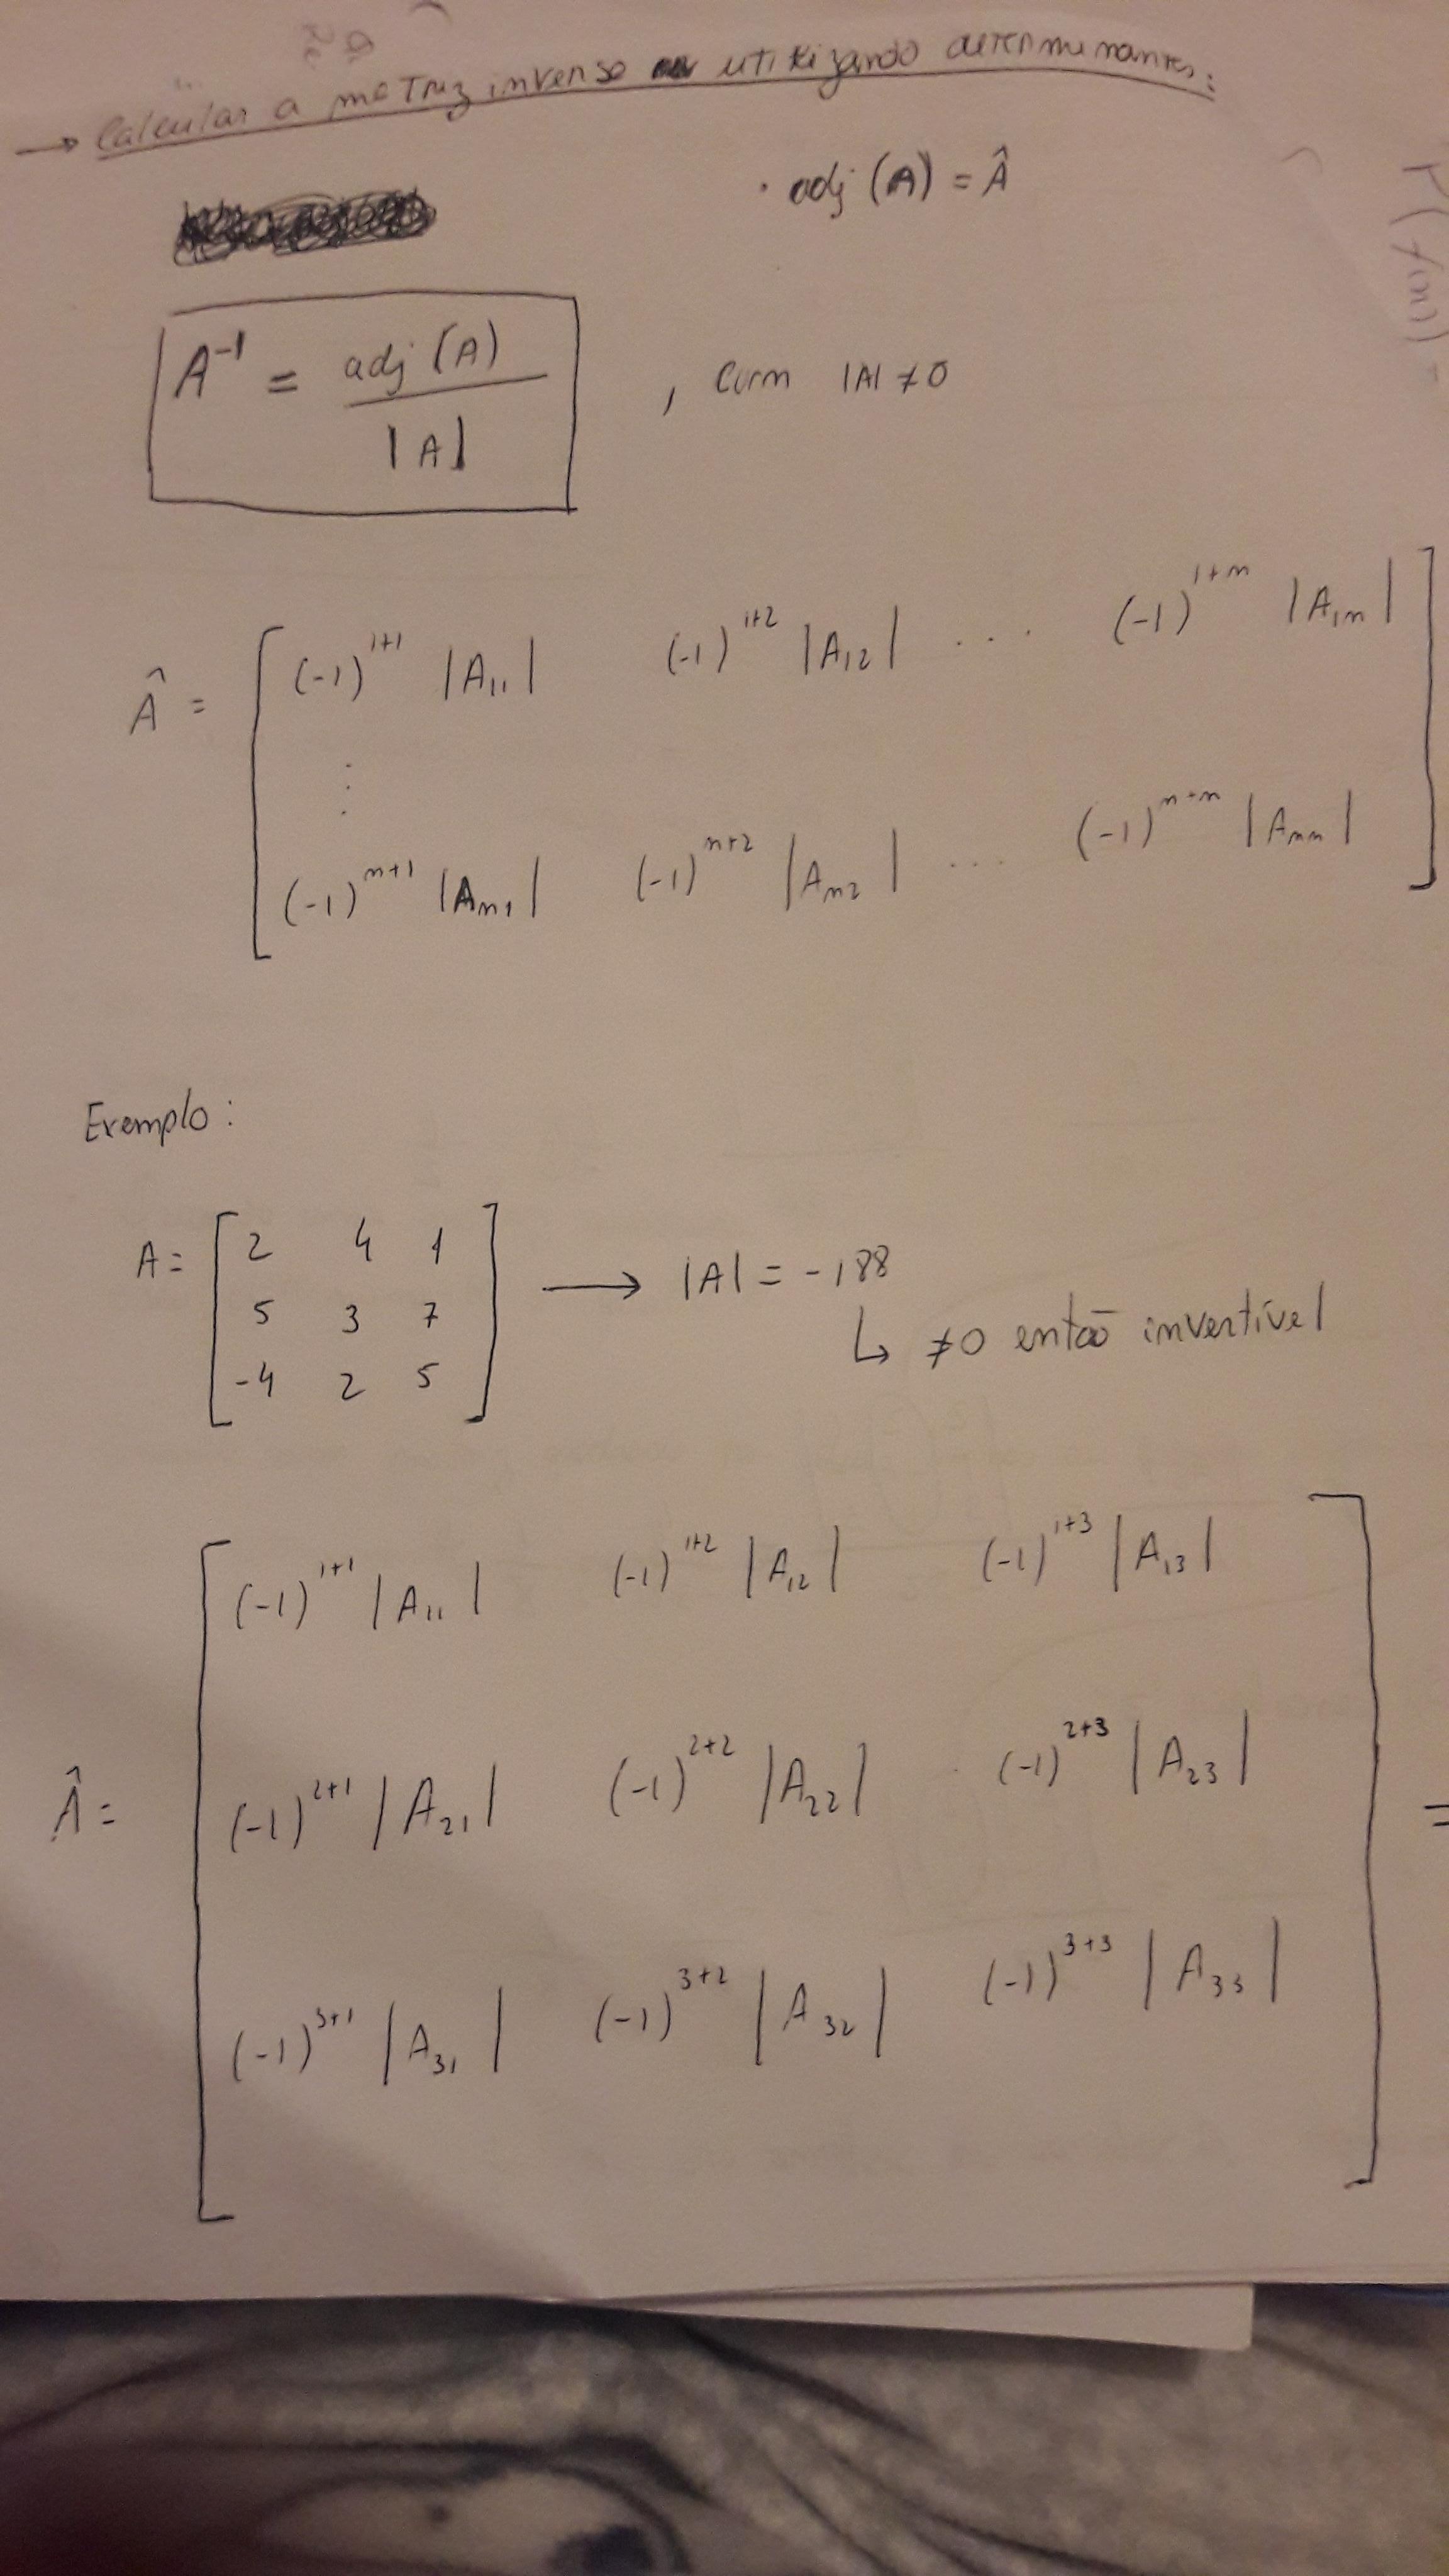 → Calcular a matriz inversa utilizando determinantes:
· adj (A) = Â
A⁻¹ = adj (A) / |A| , com |A| ≠ 0
Â = [ (-1)¹⁺¹ |A₁₁| (-1)¹⁺² |A₁₂| ... (-1)¹⁺ⁿ |A₁ₙ|
⋮
(-1)ⁿ⁺¹ |Aₙ₁| (-1)ⁿ⁺² |Aₙ₂| ... (-1)ⁿ⁺ⁿ |Aₙₙ| ]
Exemplo:
A = [ 2 4 1
5 3 7
-4 2 5 ] → |A| = -188
↳ ≠0 então invertível
Â = [ (-1)¹⁺¹ |A₁₁| (-1)¹⁺² |A₁₂| (-1)¹⁺³ |A₁₃|
(-1)²⁺¹ |A₂₁| (-1)²⁺² |A₂₂| (-1)²⁺³ |A₂₃|
(-1)³⁺¹ |A₃₁| (-1)³⁺² |A₃₂| (-1)³⁺³ |A₃₃| ] =